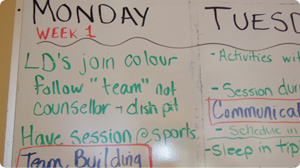 MONDAY
WEEK 1
LD's join colour
follow "team" not
counsellor → dish pit
Have session @ sports
Team Building
TUESD
- Activities wit
- Session duri
Communicat
- Schedule in
- Sleep in trip